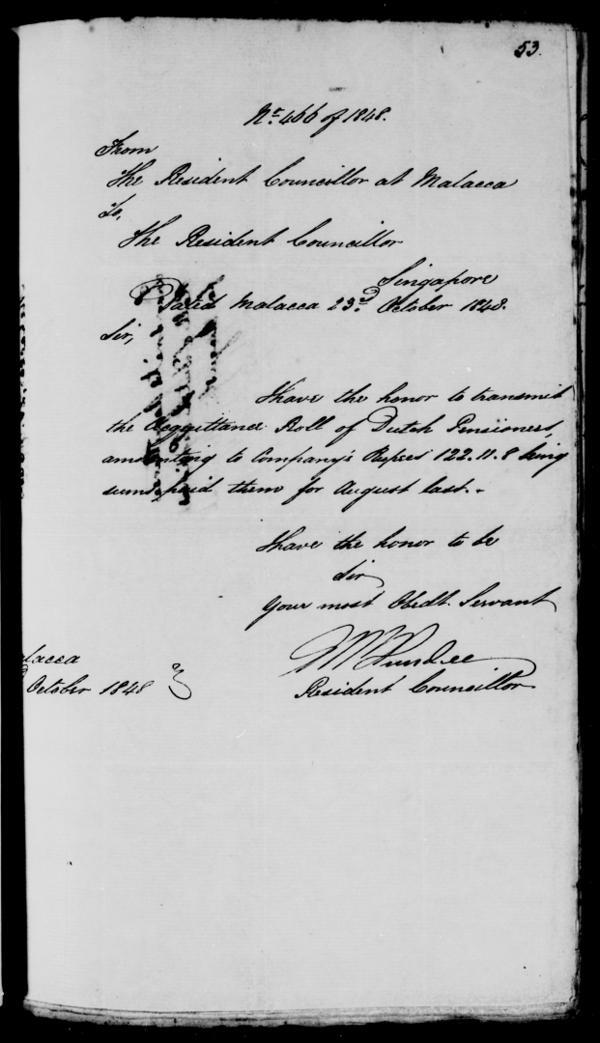 53.
No. 466 of 1848.
From
The Resident Councillor at Malacca
To,
The Resident Councillor
Singapore
Dated Malacca 23rd October 1848.
Sir,
I have the honor to transmit
the Acquittance Roll of Dutch Pensioners,
amounting to Company's Rupees 122.11.8 being
sums paid them for August last.
I have the honor to be
Sir
Your most Obedt. Servant
Resident Councillor
lacca
October 1848